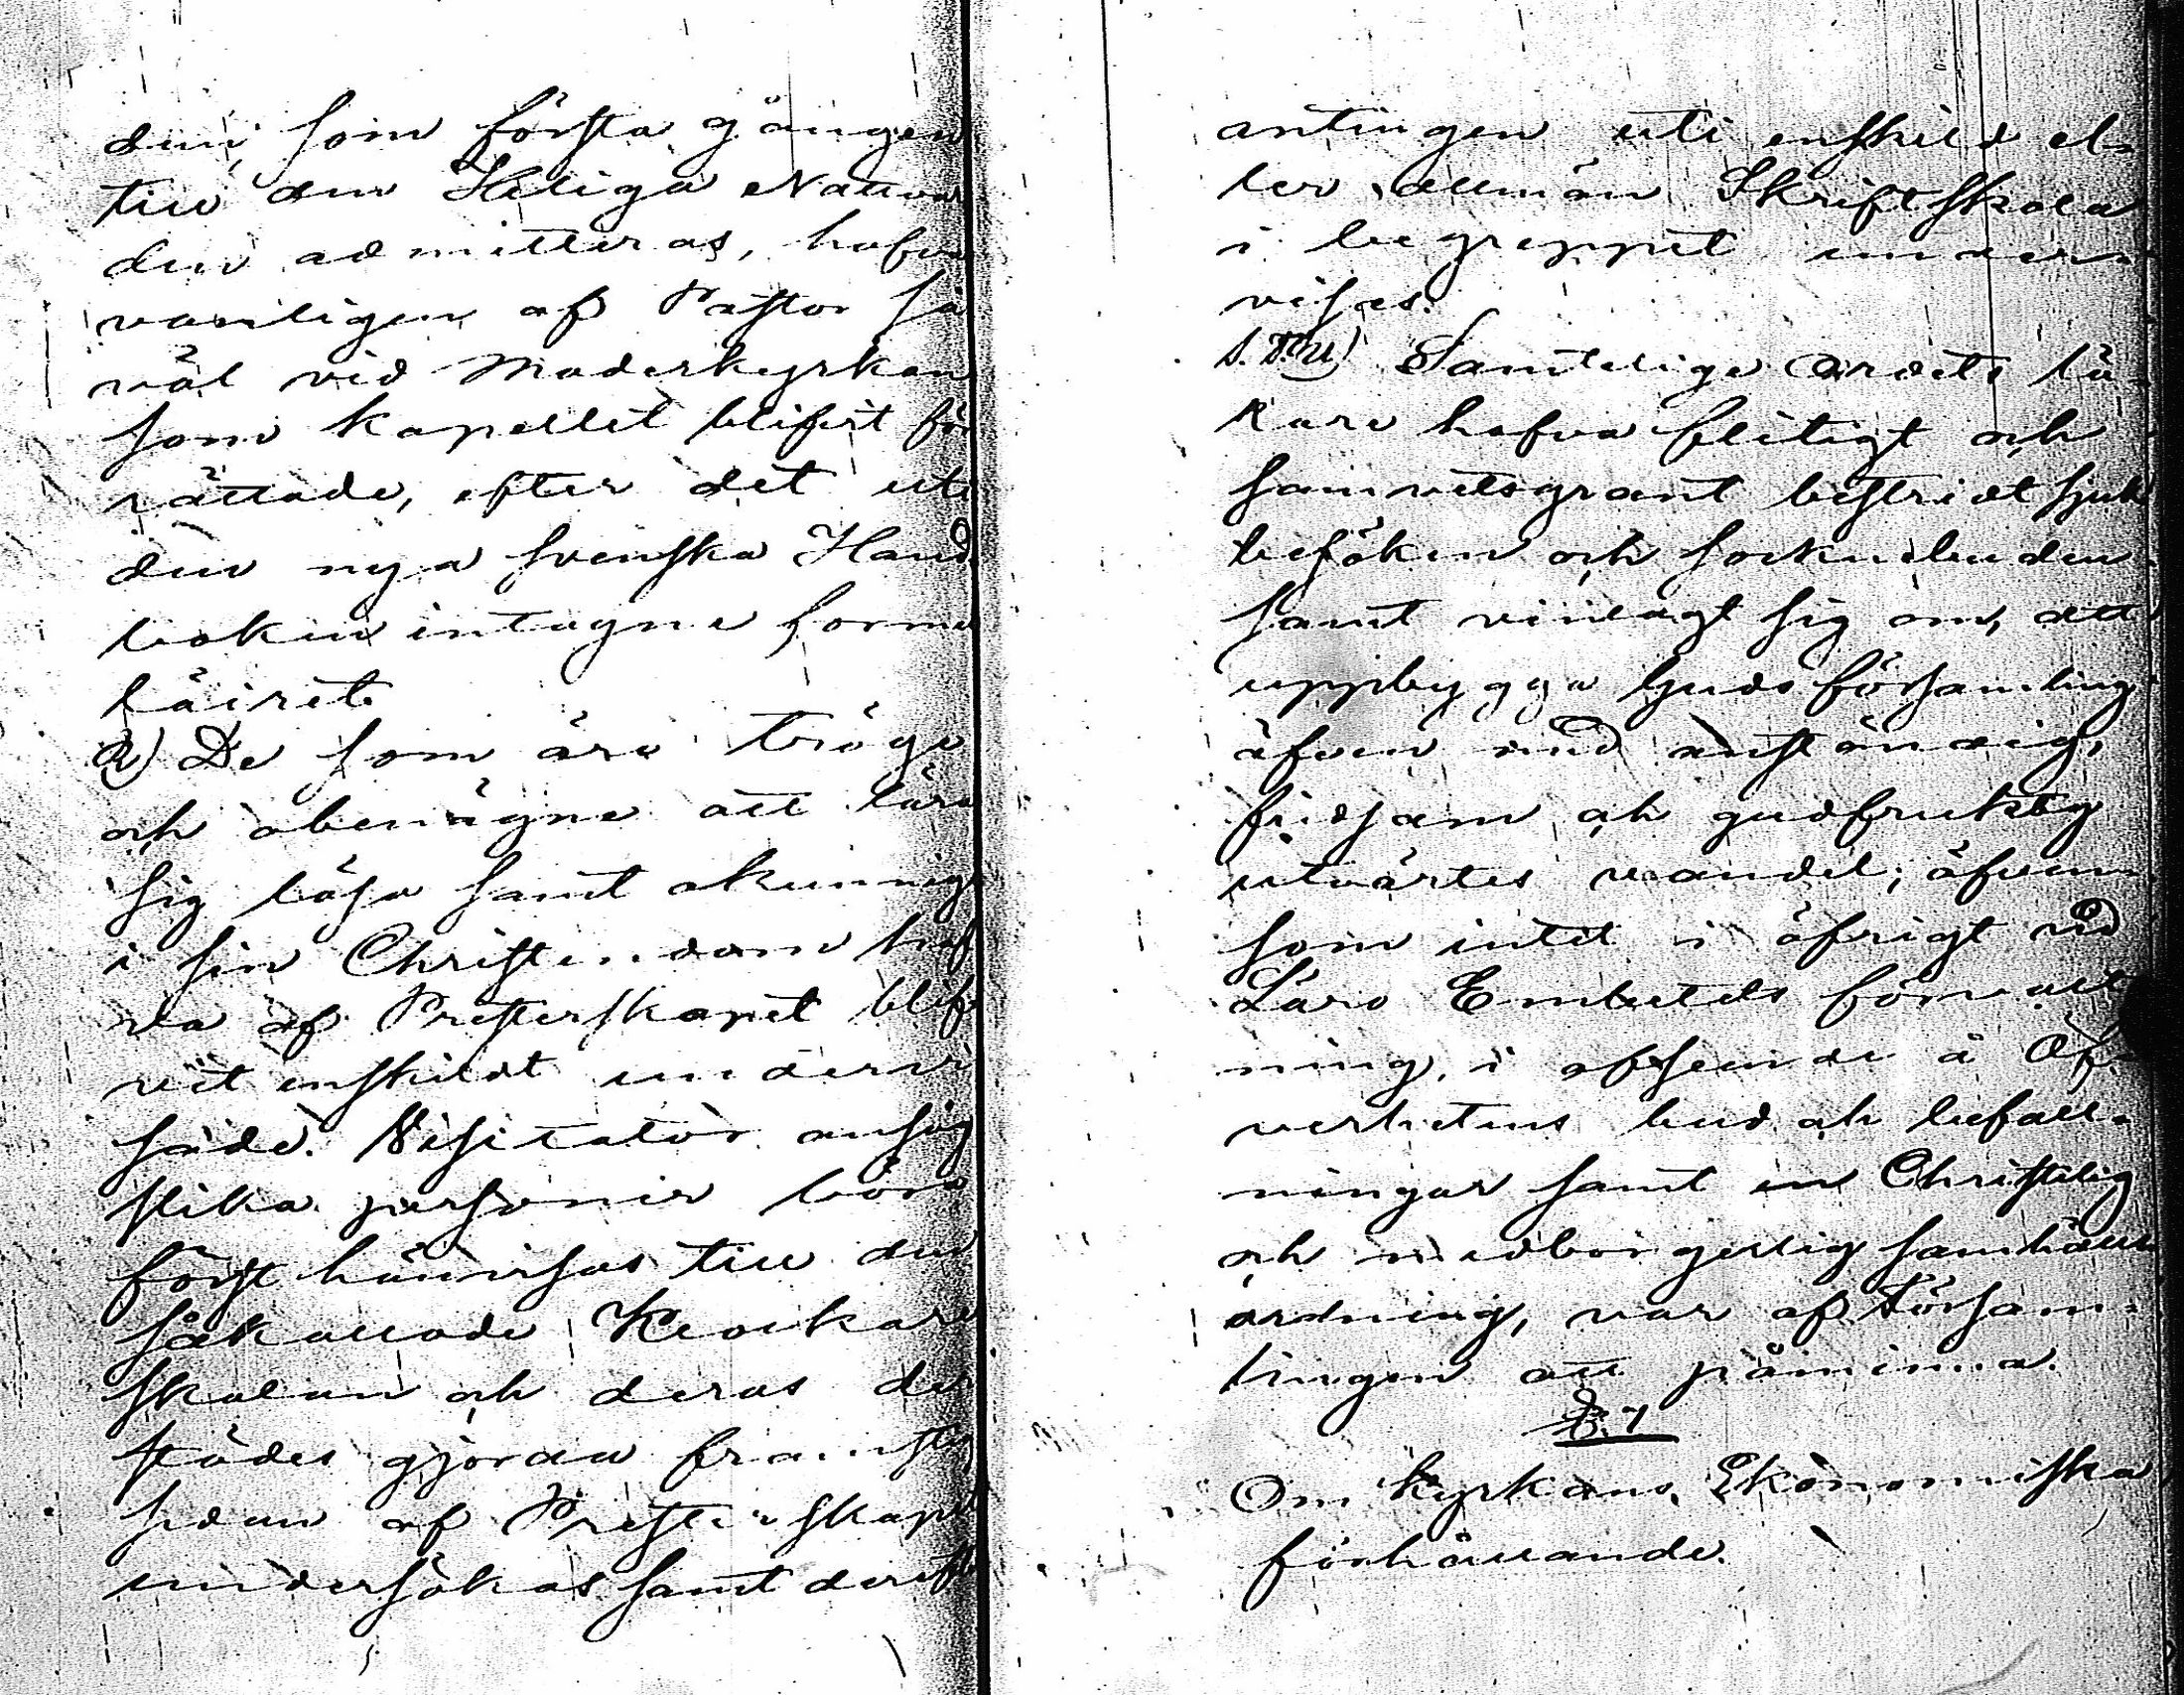 dem, som första gången
till den Heliga Nattvar
den admitteras, hafva
vanligen af Pastor så
väl vid Moderkyrkan
som kapellet blifvit för
rättade, efter det uti
den nya svenska Hand
boken intagne formu
läiret.
2) De som äro tröge
och obenägne att lära
sig läsa samt okunnige
i sin Christendom haf
va af Presterskapet blif
vit enskildt undervi
sade. Visitator ansåg
slika personer böra
först hänvisas till den
såkallade Klockare
skolan och deras der
städes gjorda framsteg
sedan af Presterskapet
undersökas samt derefter
antingen uti enskild el=
ler allmän Skriftskola
i begreppet under=
visas.
Samtelige Ordets lä=
rare hafva flitigt och
samvetsgrant bestridt sjuk
besöken och sockenbuden
samt vinlagt sig om, att
uppbygga Guds församling
äfven med anständig,
fridsam och gudfruktig
utvärtes vandel; äfven
som intet i öfrigt vid
Läro Embetets förvalt
ning, i afseende å Öf=
verhetens bud och befall=
ningar samt en Christelig
och medborgerlig samhälls
ordning, var af Försam=
lingen att påminna.
Om Kyrkans Ekonomiska
förhållande.